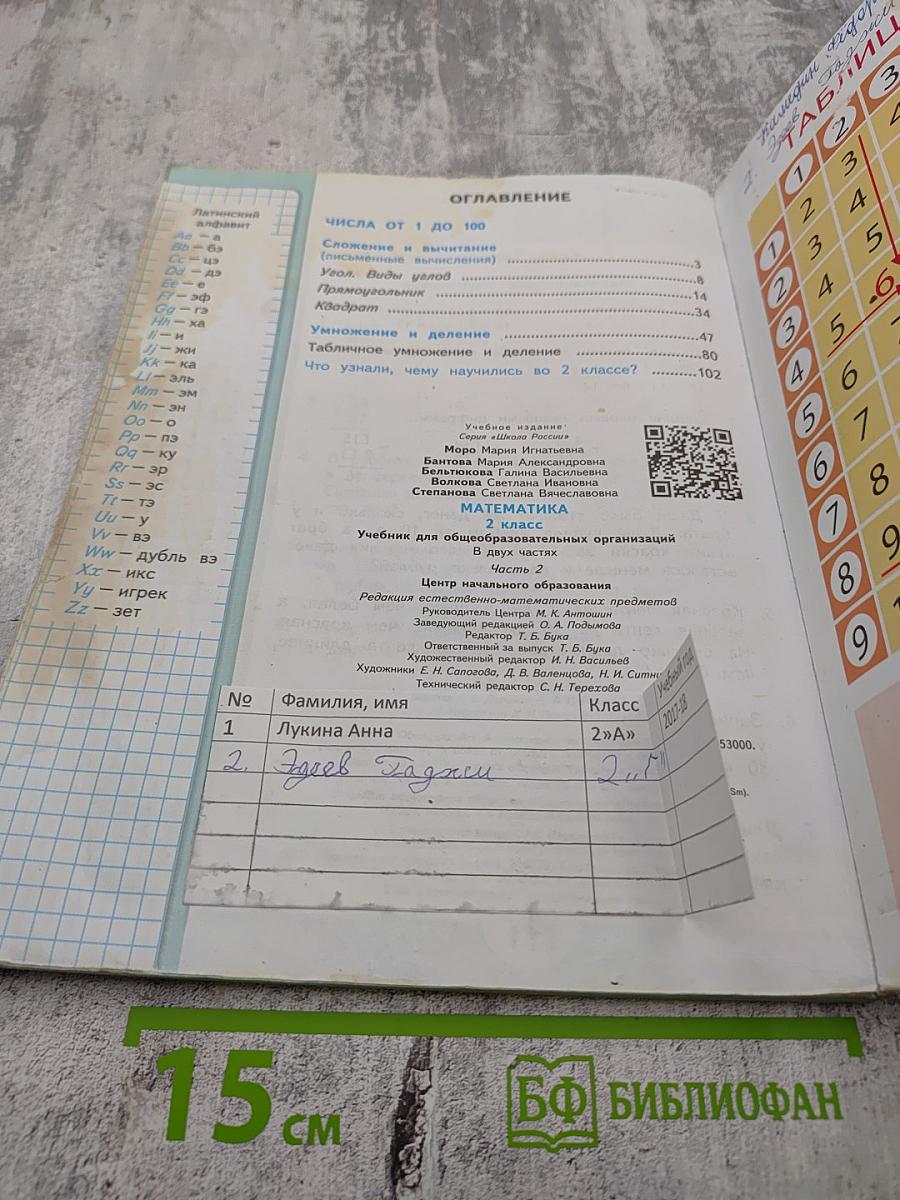 Латинский
алфавит
Aa – а
Bb – бэ
Cc – цэ
Dd – дэ
Ee – е
Ff – эф
Gg – гэ
Hh – ха
Ii – и
Jj – жи
Kk – ка
Ll – эль
Mm – эм
Nn – эн
Oo – о
Pp – пэ
Qq – ку
Rr – эр
Ss – эс
Tt – тэ
Uu – у
Vv – вэ
Ww – дубль вэ
Xx – икс
Yy – игрек
Zz – зет
ОГЛАВЛЕНИЕ
ЧИСЛА ОТ 1 ДО 100
Сложение и вычитание
(письменные вычисления) ........ 3
Угол. Виды углов ........ 8
Прямоугольник ........ 14
Квадрат ........ 34
Умножение и деление ........ 47
Табличное умножение и деление ........ 80
Что узнали, чему научились во 2 классе? ........ 102
Учебное издание
Серия «Школа России»
Моро Мария Игнатьевна
Бантова Мария Александровна
Бельтюкова Галина Васильевна
Волкова Светлана Ивановна
Степанова Светлана Вячеславовна
МАТЕМАТИКА
2 класс
Учебник для общеобразовательных организаций
В двух частях
Часть 2
Центр начального образования
Редакция естественно-математических предметов
Руководитель Центра М. К. Антошин
Заведующий редакцией О. А. Подымова
Редактор Т. Б. Бука
Ответственный за выпуск Т. Б. Бука
Художественный редактор И. Н. Васильев
Художники Е. Н. Сапогова, Д. В. Валенцова, Н. И. Ситн
Технический редактор С. Н. Терехова
53000.
Sm).
№ Фамилия, имя Класс Учебный год
1 Лукина Анна 2»А» 2017-18
2. Эдеев Гаджи 2„Г"
ТАБЛИЦ
1 2 3
1 2 3 4
2 3 4 5
3 4 5 6
4 5 6 7
5 6 7 8
6 7 8 9
7
8
9
15 см
БФ БИБЛИОФАН